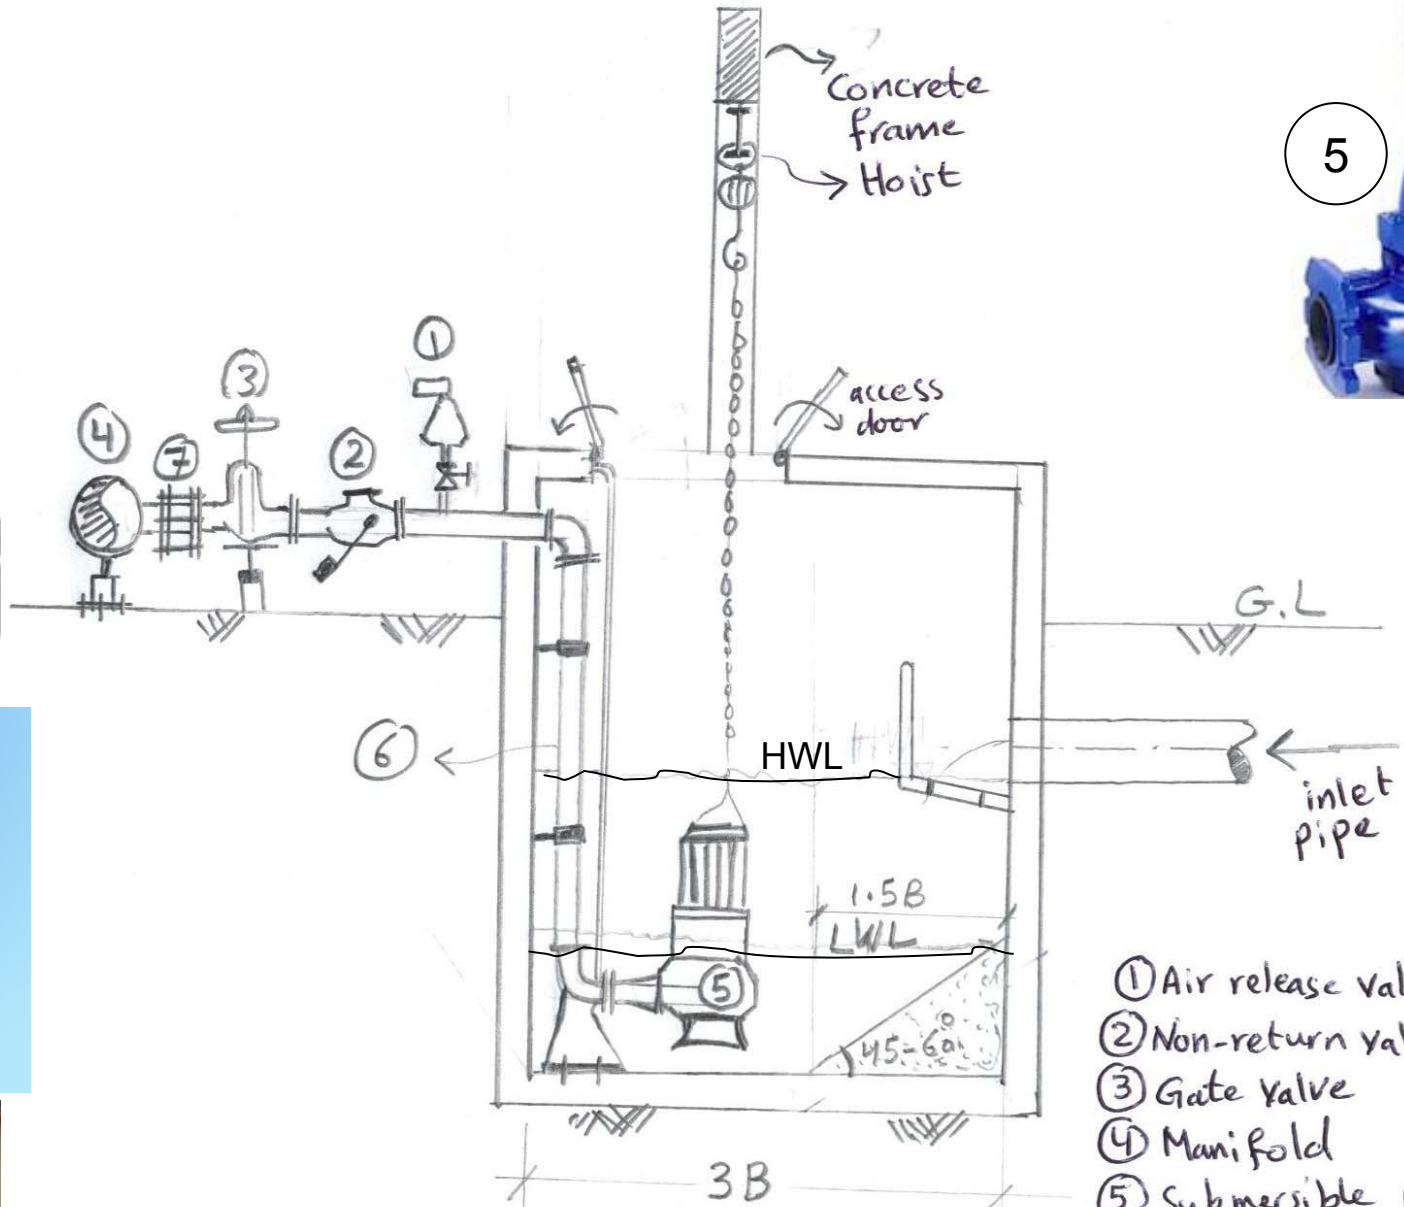 Concrete
frame
Hoist
5
1
3
access
door
4
7
2
G.L
6
HWL
inlet
pipe
1.5B
LWL
5
45-60
① Air release
② Non-return
③ Gate valve
④ Manifold
⑤ Submersible
3B